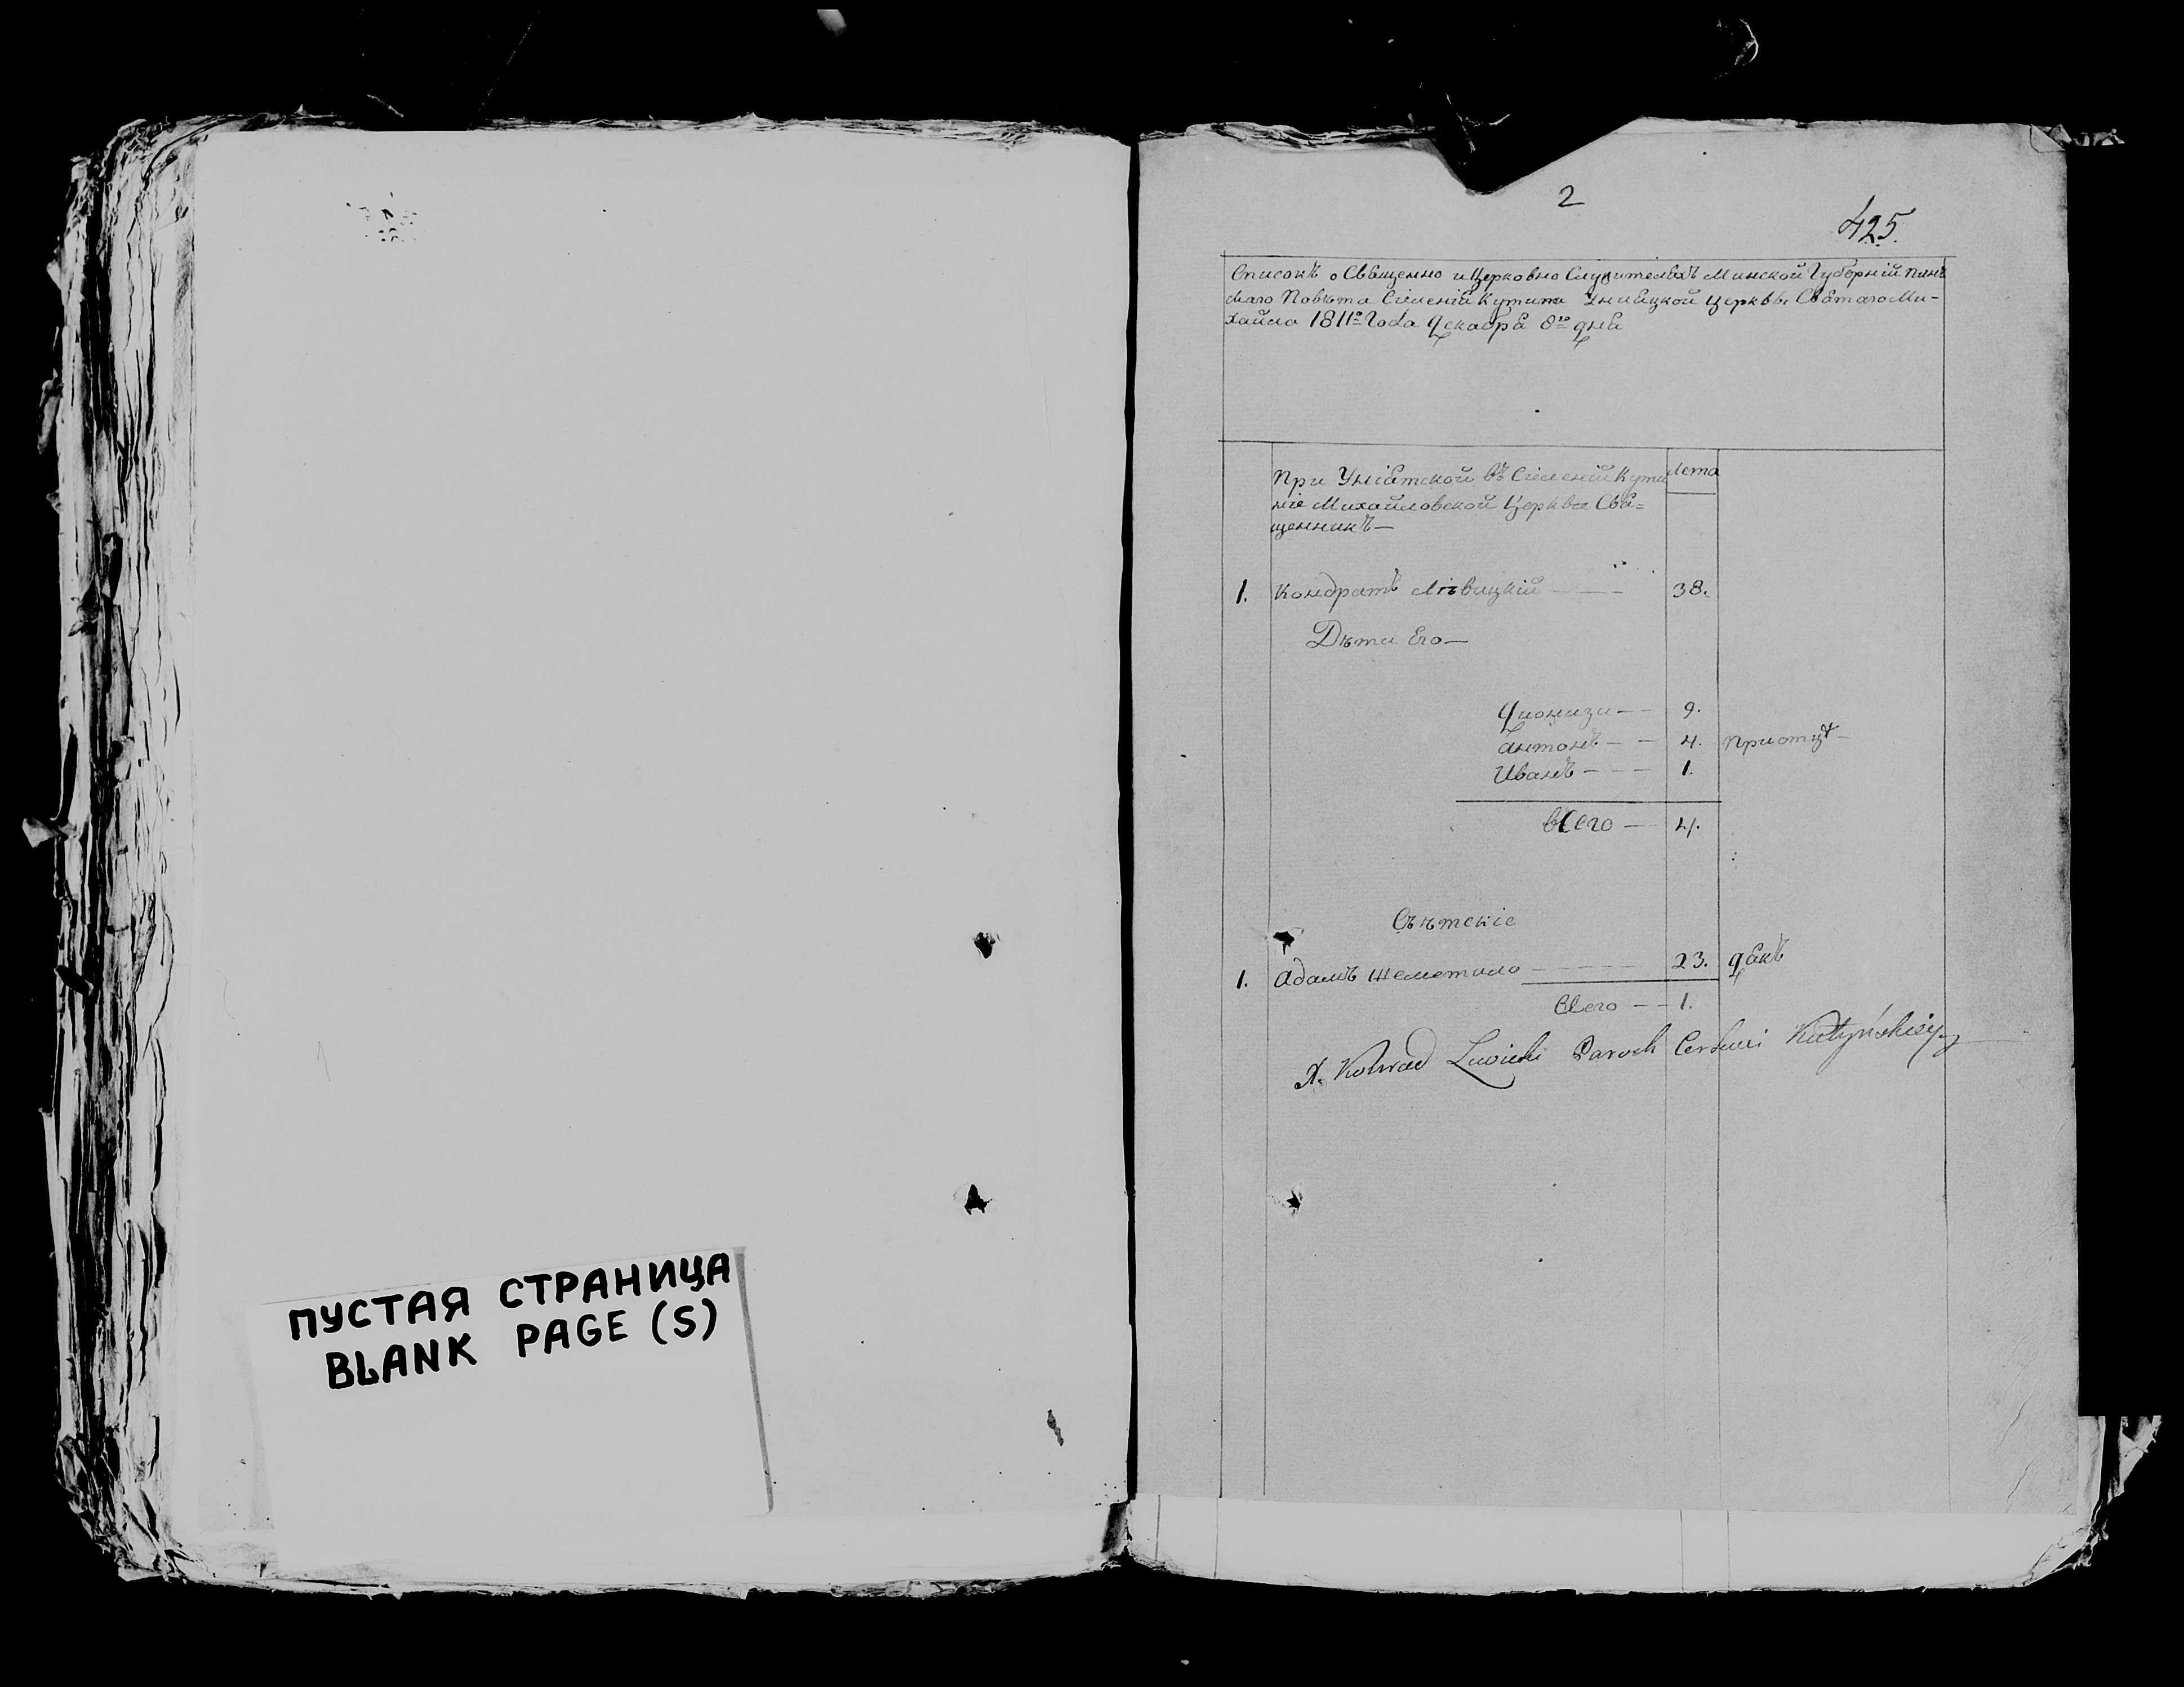 ПУСТАЯ СТРАНИЦА
BLANK PAGE (S)
2
425.
Списокъ о Священно и Церковно Служителяхъ Минской Губерній Пинъ
скаго Повѣта Сіеленій Кутина Унияцкой Церквы Святаго Ми-
хайла 1811го Года Декабря 8го дня
При Уніятской въ Сіеленій Кути
ніе Михайловской Церкве Свя=
щенникъ—
Лета
1. Кондратъ Лѣвицкій — 38.
Дѣти Его—
Дионизи — 9.
Антонъ — 4. При отцѣ—
Иванъ — 1.
всего — 4.
Свѣтскіе
1. Адамъ Шеметило — 23. дякъ
всего — 1.
X. Konrad Lewicki Paroch Cerkwi Kutyńskiey